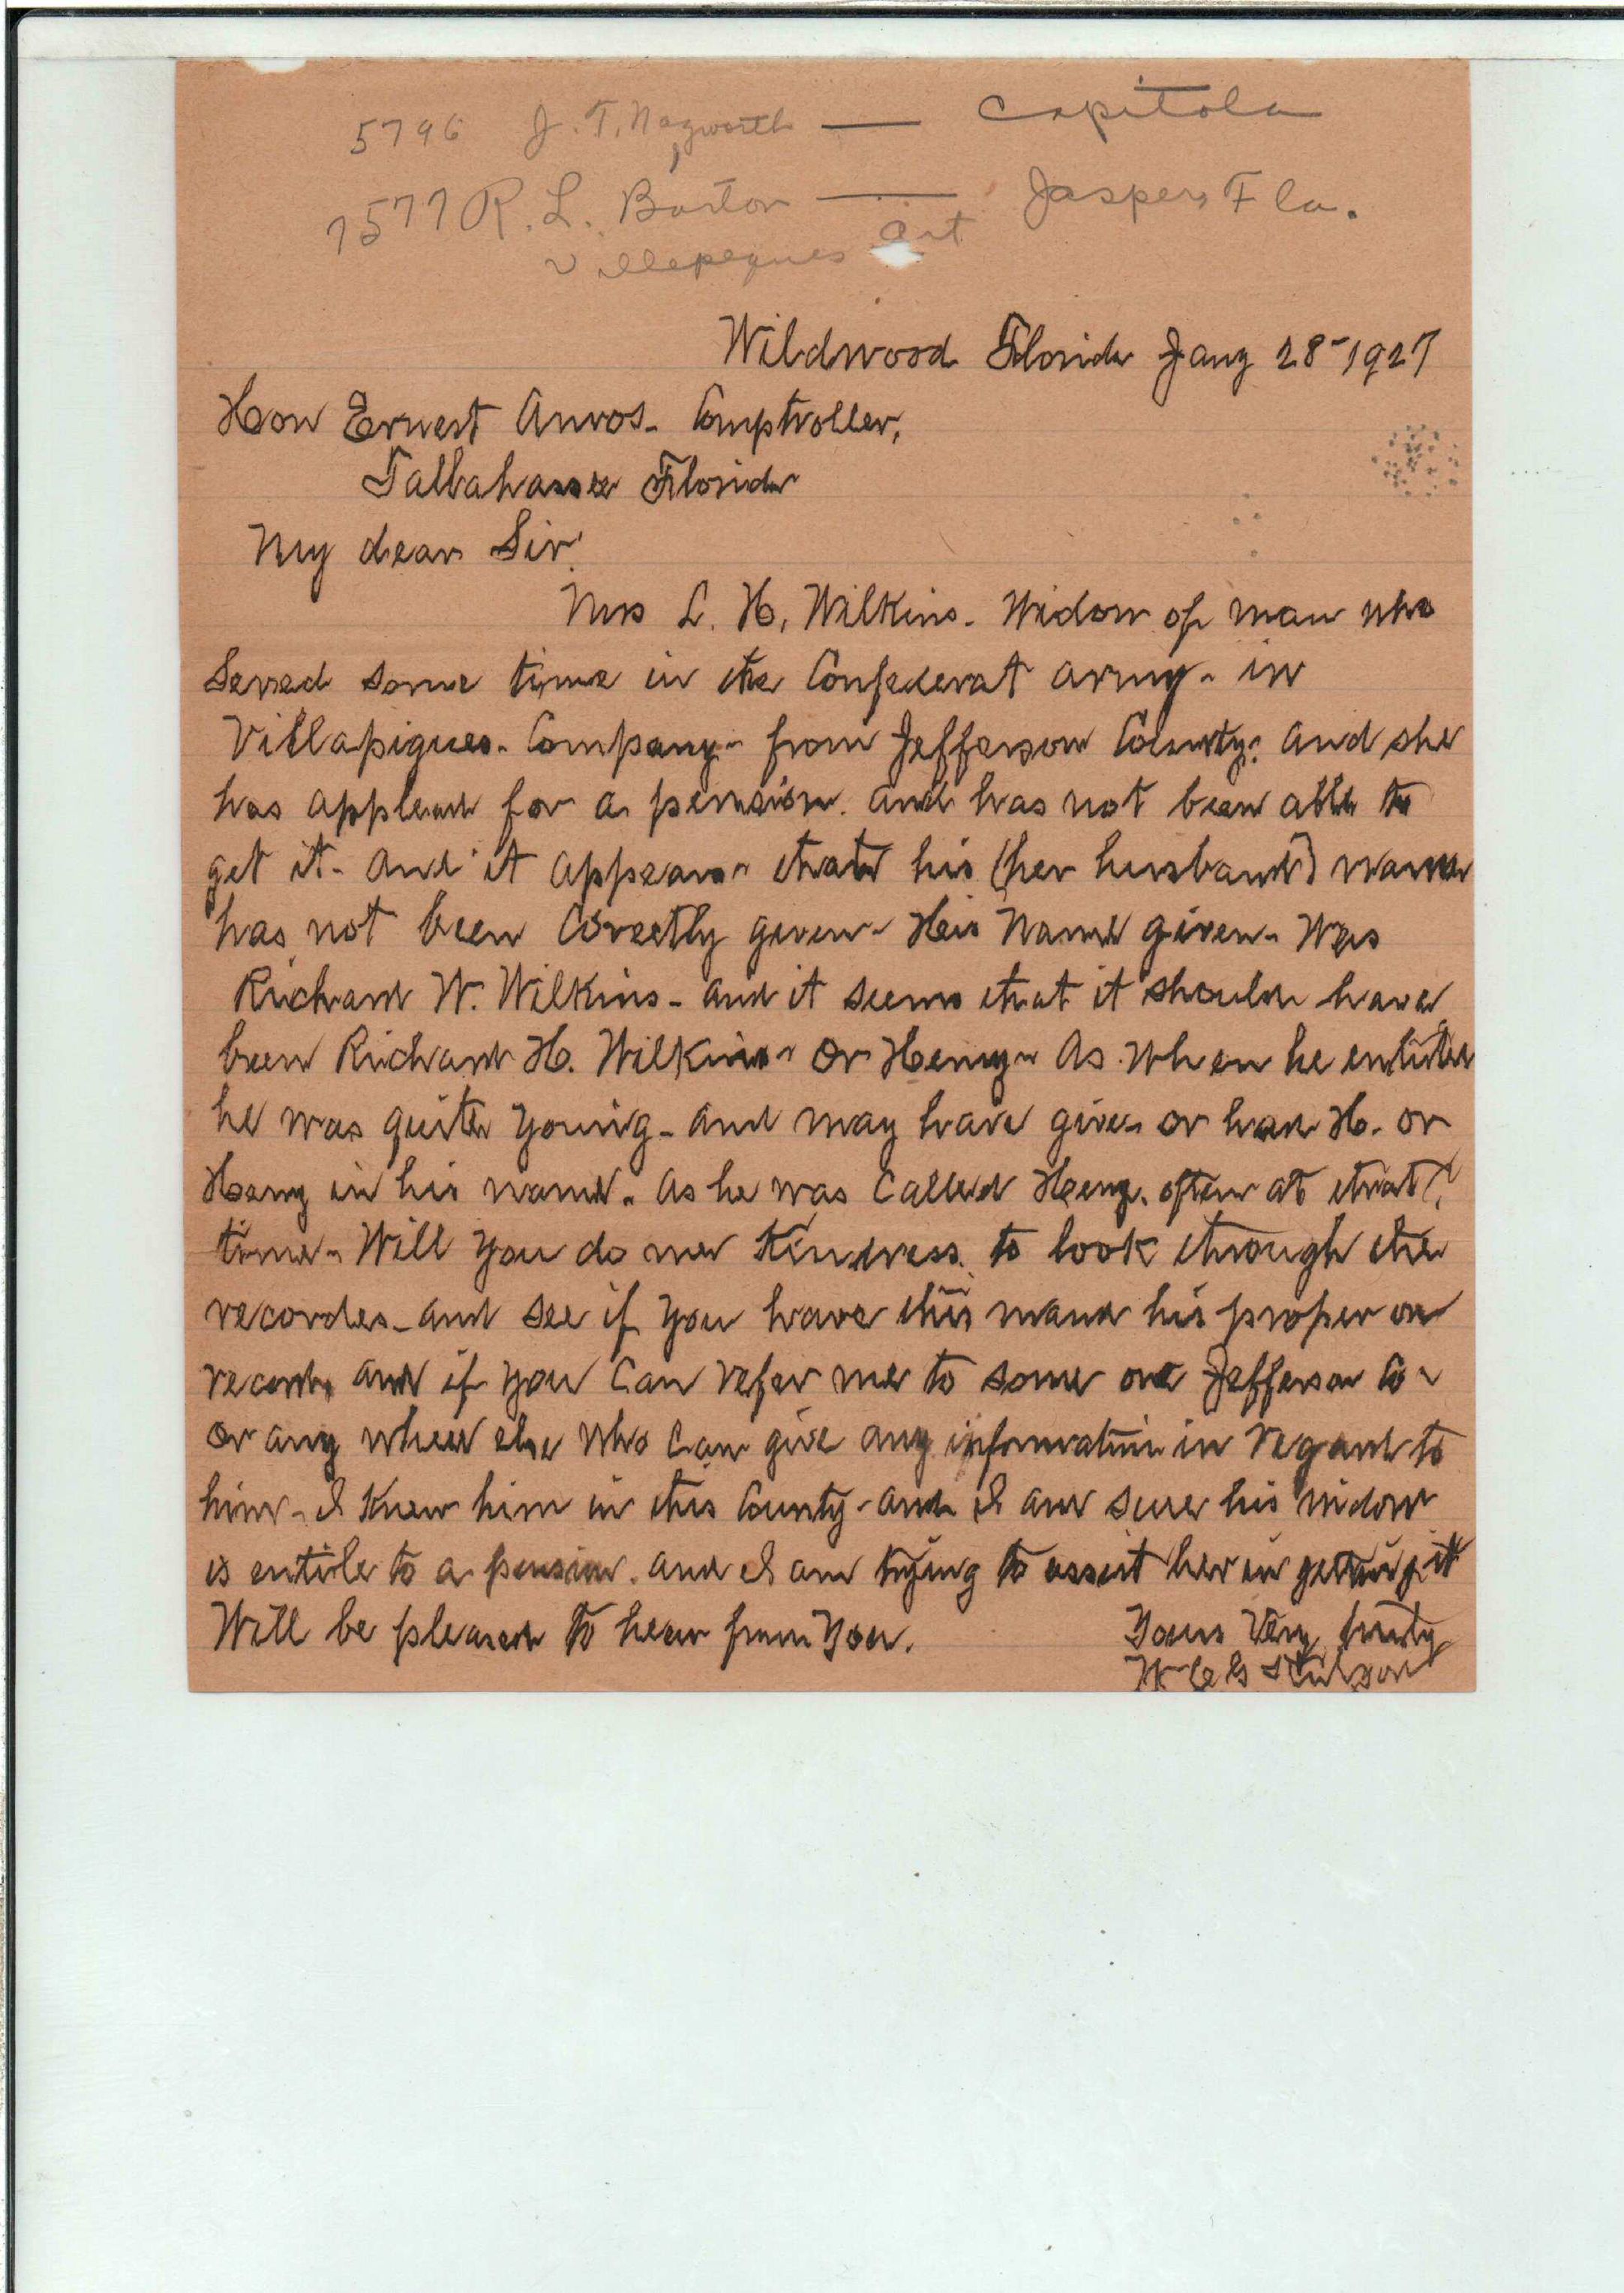 5796 J. T. Hagworth — Capitola
7577 R. L. Barton — Jasper, Fla.
Villepegues Art
Wildwood Florida Jany 28-1927
Hon Ernest Amos- Comptroller,
Tallahassee Florida
My dear Sir.
Mrs L. H. Wilkins- Widow of man who
served some time in the Confederat army- in
Villapigues- Company- from Jefferson County. and she
has applead for a pension. and has not been able to
get it- and it appears- that his (her husband) name
has not been Correctly given- His Name given- was
Richard W. Wilkins- and it seems that it should have
been Richard H. Wilkins- or Henry- As when he enlisted
he was quite young- and may have given or had H. or
Henry in his name. As he was Called Henry. often at that
time- Will you do me Kindness. to look through the
recordes- and see if you have this his proper on
record, and if you Can refer me to some one Jefferson Co-
or any where else who can give any information in regard to
him- I Knew him in this County- and I am sure his widow
is entitle to a pension. and I am trying to assist her in getting it
Will be pleased to hear from you. Yours Very truly